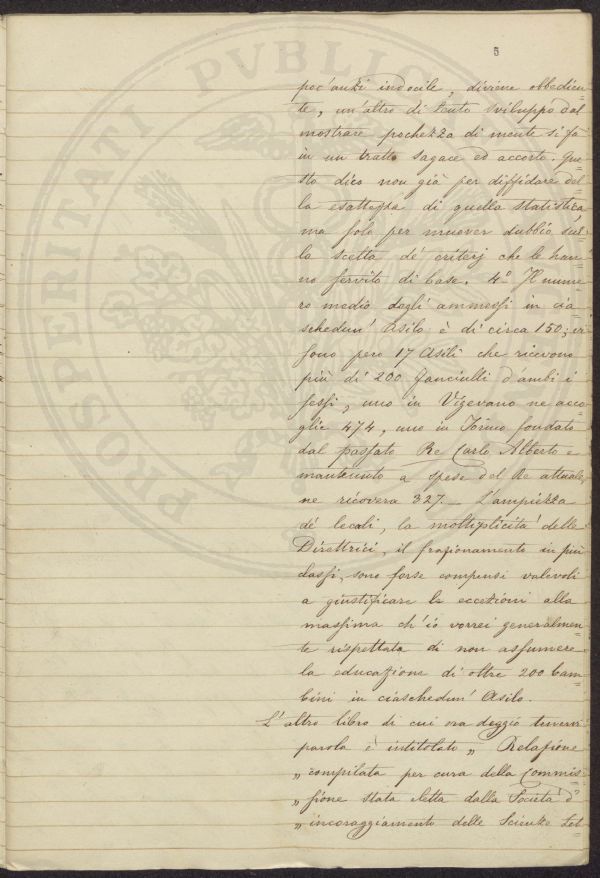 5
poc'anzi indocile, diviene obbedien=
te, un'altro di lento sviluppo dal
mostrare pochezza di mente si fà
in un tratto sagace ed accorto. Que=
sto dico non già per diffidare del=
la esattezza di quella statistica
ma solo per muover dubbio sul=
la scelta de' criterj che le han=
no servito di base. 4.° Il nume=
ro medio degli ammessi in cia=
schedun' Asilo è di circa 150; vi
sono però 17 Asili che ricevono
più di 200 fanciulli d'ambi i
sessi, uno in Vigevano ne acco=
glie 474, uno in Torino fondato
dal passato Re Carlo Alberto e
mantenuto a spese del Re attuale,
ne ricovera 327. _ L'ampiezza
de' locali, la moltiplicità delle
Direttrici, il frazionamento in più
classi, sono forse compensi valevoli
a giustificare le eccezioni alla
massima ch'io vorrei generalmen=
te rispettata di non assumere
la educazione di oltre 200 bam=
bini in ciaschedun' Asilo.
L'altro libro di cui ora deggio tenervi
parola è intitolato „ Relazione
„ compilata per cura della Commis=
„ sione stata eletta dalla Società d'
„ incoraggiamento delle Scienze Let=
PROSPERITATI PVBLIC